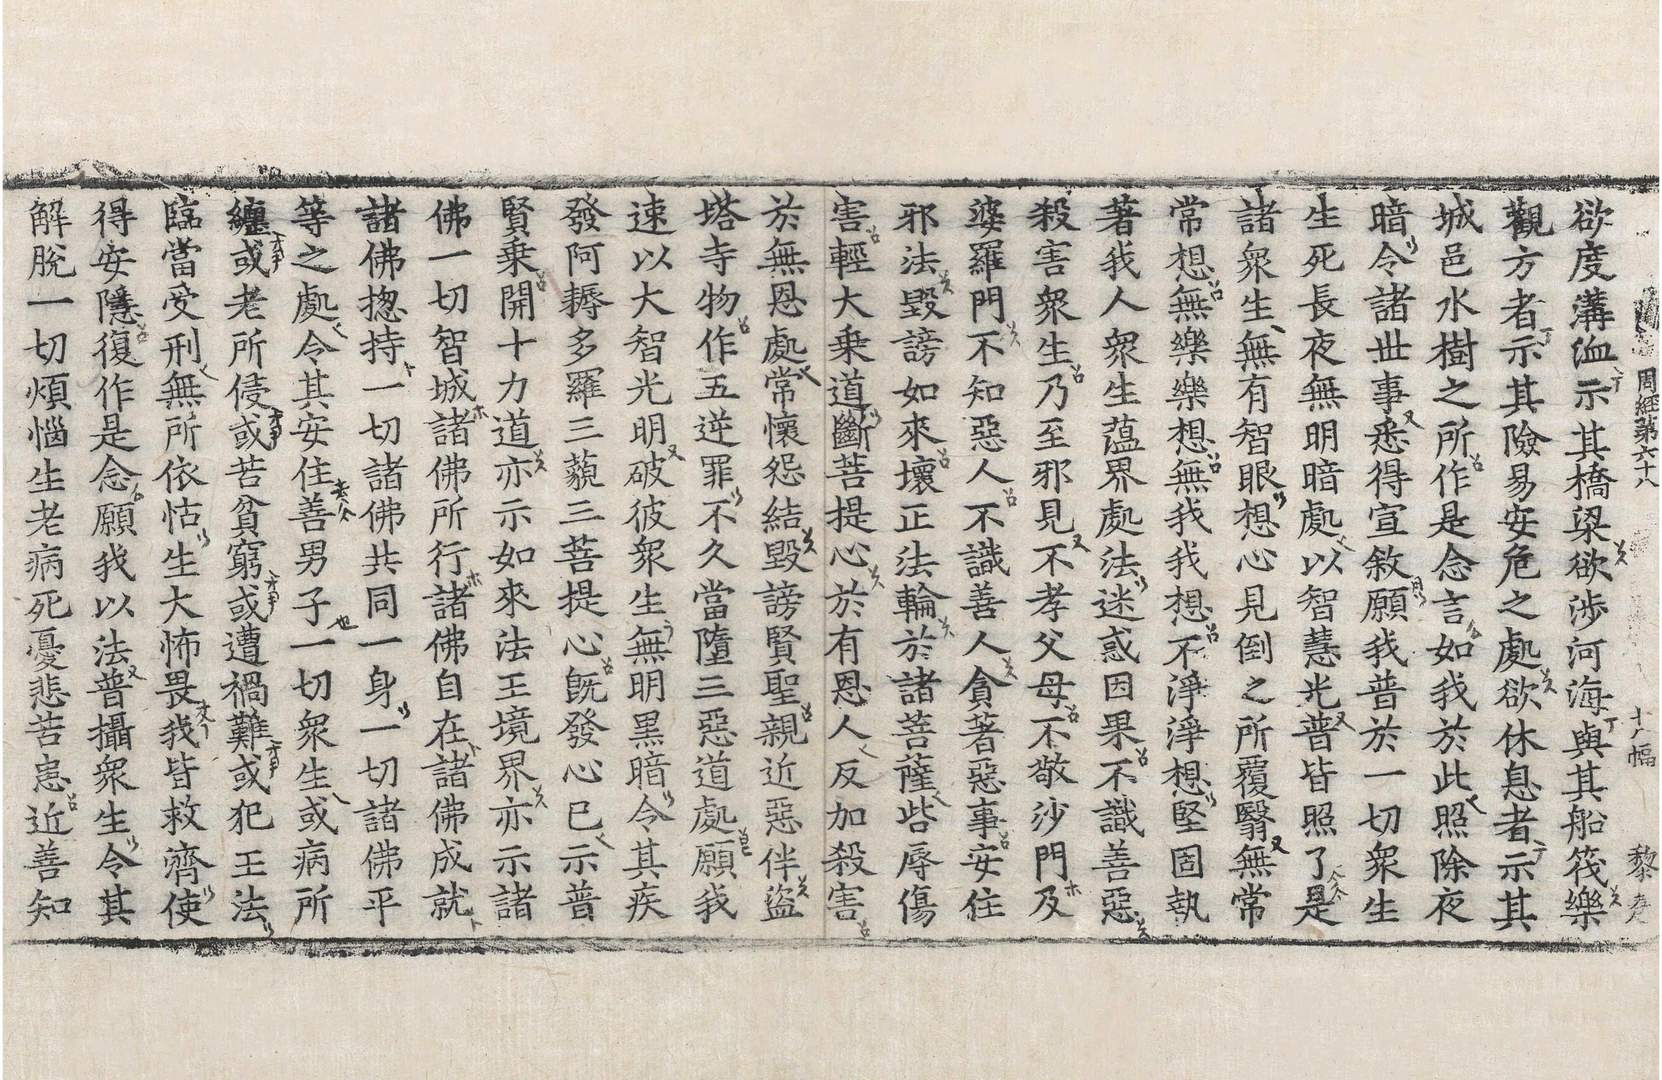 周經第六十八 十八幅 黎克
欲度溝洫示其橋梁欲涉河海與其船筏樂
觀方者示其險易安危之處欲休息者示其
城邑水樹之所作是念言如我於此照除夜
暗令諸世事悉得宣敘願我普於一切眾生
生死長夜無明暗處以智慧光普皆照了是
諸眾生無有智眼想心見倒之所覆翳無常
常想無樂樂想無我我想不淨淨想堅固執
著我人眾生蕰界處法迷惑因果不識善惡
殺害眾生乃至邪見不孝父母不敬沙門及
婆羅門不知惡人不識善人貪著惡事安住
邪法毀謗如來壞正法輪於諸菩薩呰辱傷
害輕大乗道斷菩提心於有恩人反加殺害
於無恩處常懷怨結毀謗賢聖親近惡伴盜
塔寺物作五逆罪不久當墮三惡道處願我
速以大智光明破彼眾生無明黑暗令其疾
發阿耨多羅三藐三菩提心既發心已示普
賢乗開十力道亦示如來法王境界亦示諸
佛一切智城諸佛所行諸佛自在諸佛成就
諸佛揔持一切諸佛共同一身一切諸佛平
等之處令其安住善男子一切眾生或病所
纏或老所侵或苦貧窮或遭禍難或犯王法
臨當受刑無所依怙生大怖畏我皆救濟使
得安隱復作是念願我以法普攝眾生令其
解脫一切煩惱生老病死憂悲苦患近善知